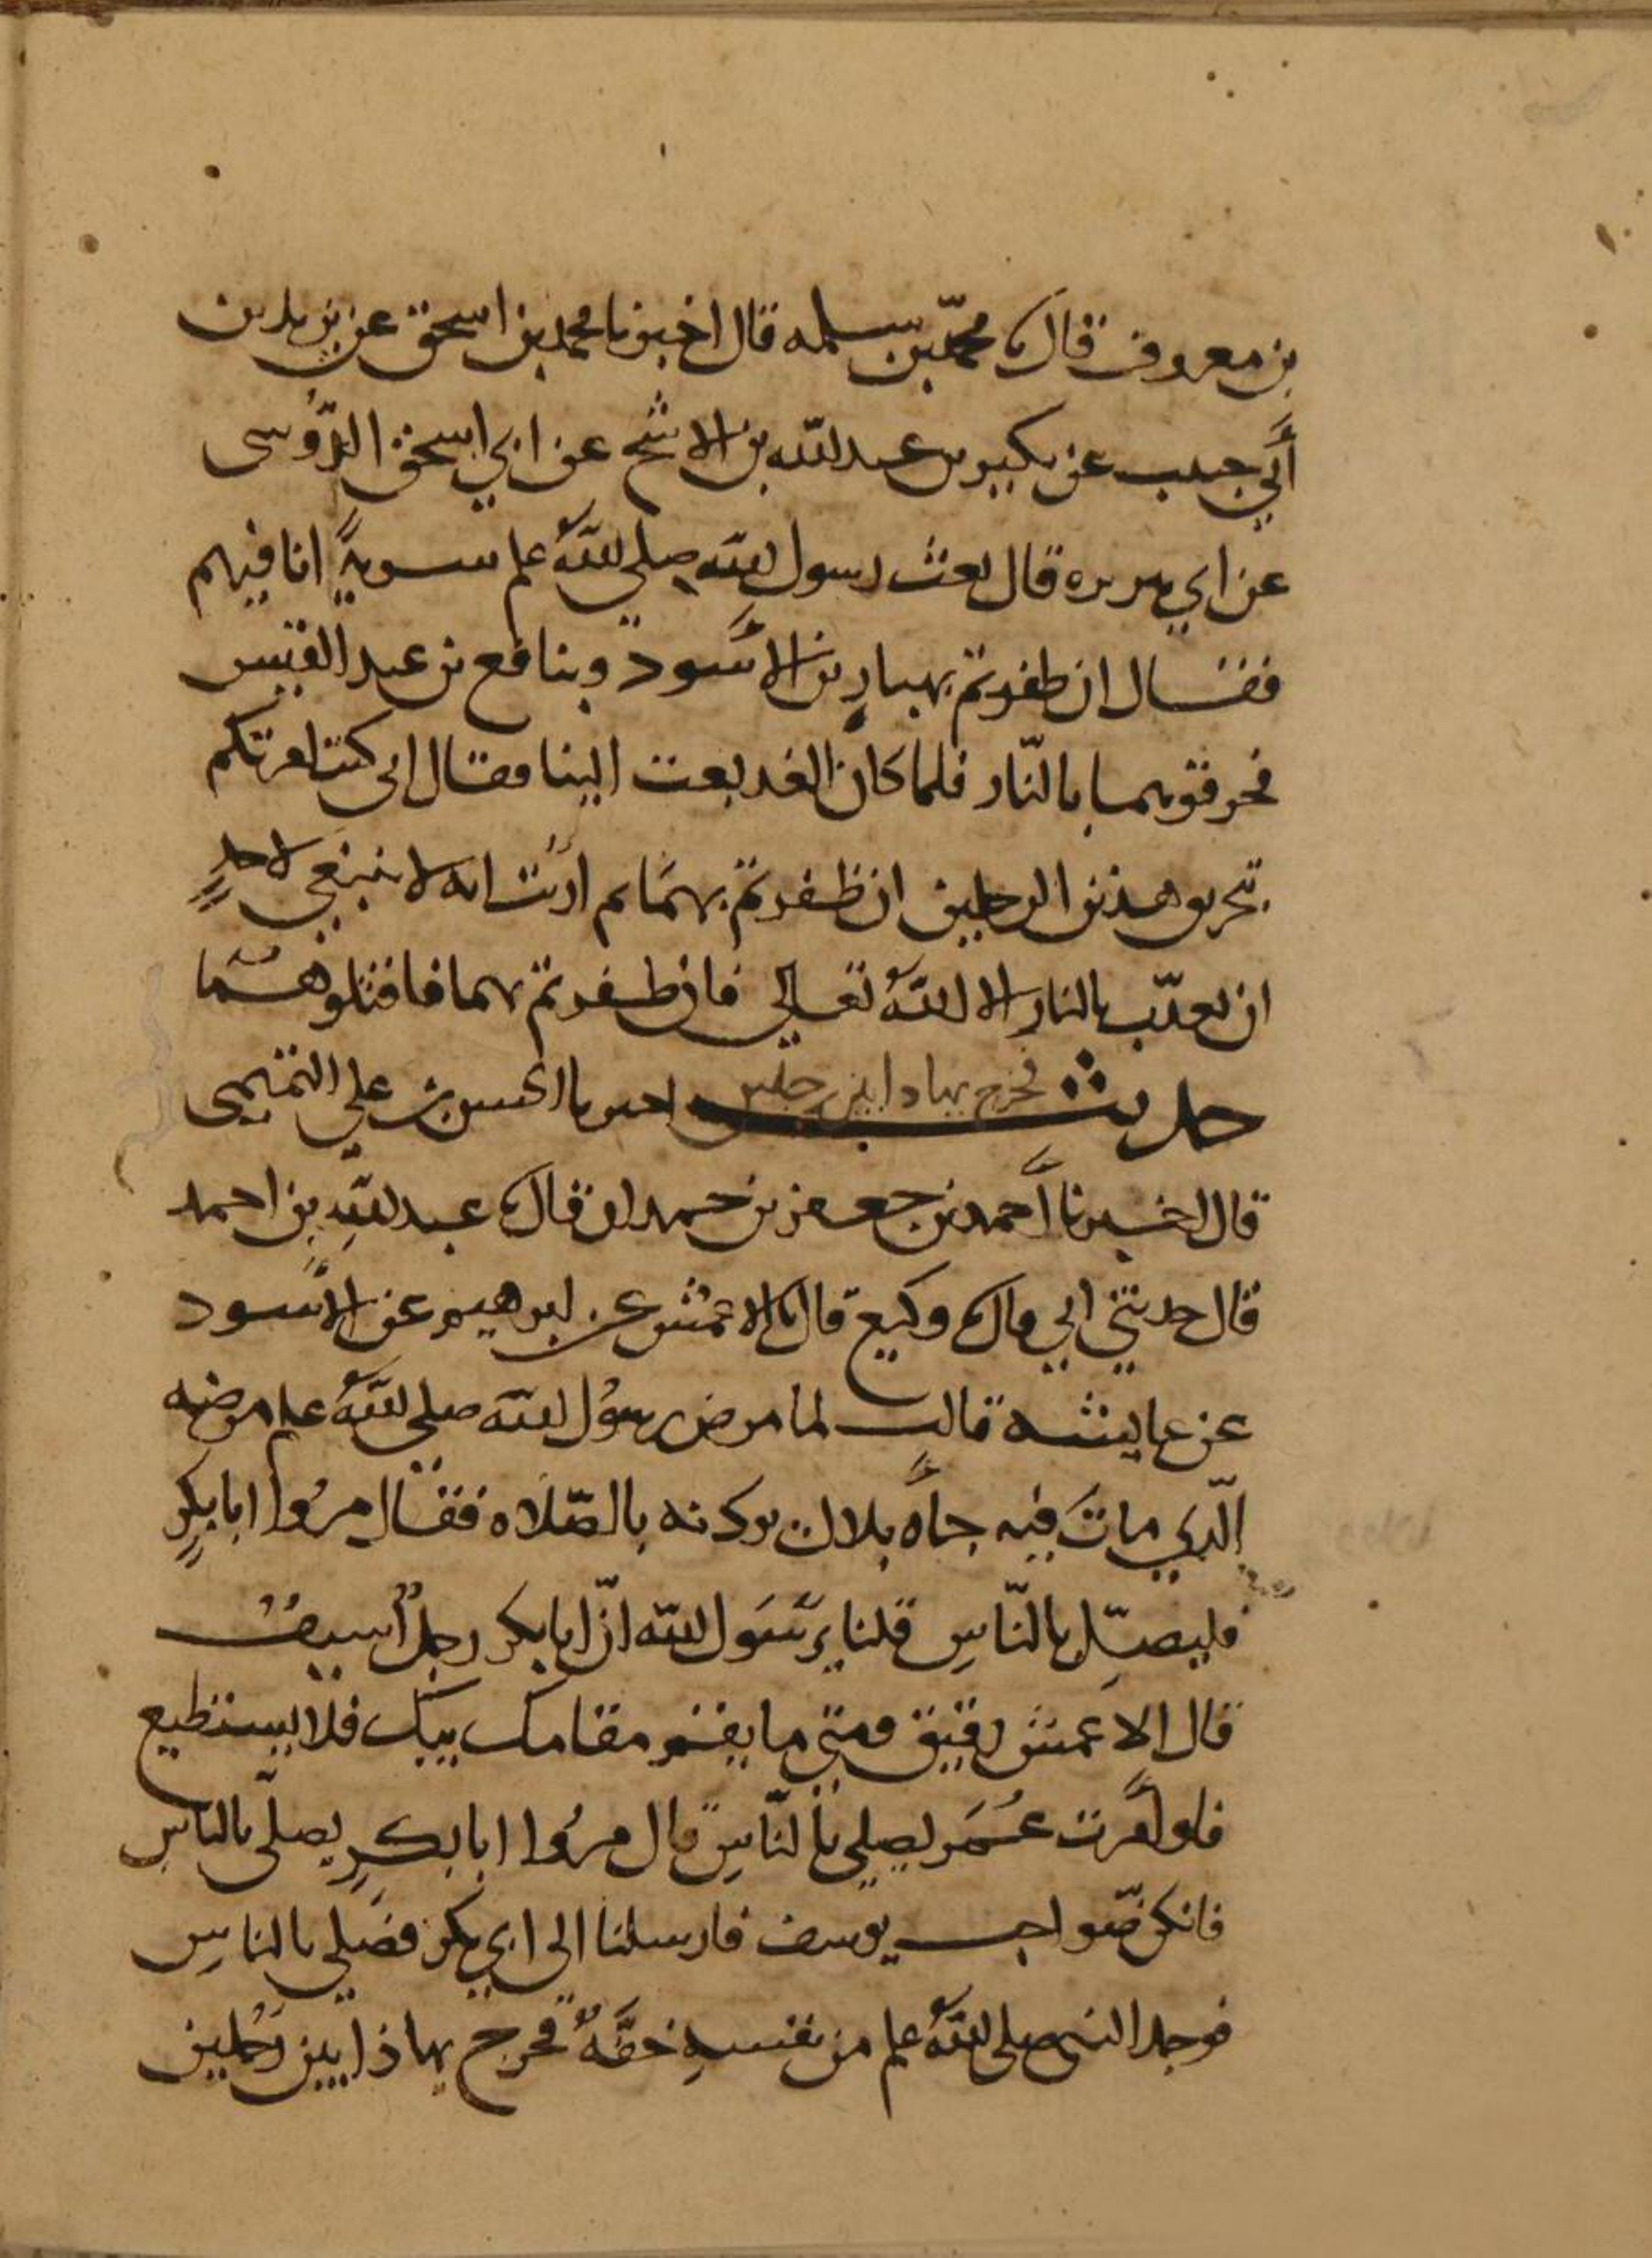 بن معروف قال نا محمد بن سلمه قال اخبرنا محمد بن اسحق عن يزيد بن
أبي حبيب عن بكير بن عبد الله بن الاشج عن ابي اسحق الدوسي
عن ابي هريره قال بعث رسول الله صلى الله علم سرية انا فيهم
فقال ان ظفرتم بهبار بن الأسود وبنافع بن عبد القيس
فحرقوهما بالنار فلما كان الغد بعث الينا فقال اني كنت امرتكم
بتحريق هذين الرجلين ان ظفرتم بهما ثم ارئت انه لا ينبغي لاحد
ان يعذب بالنار الا الله تعالي فان ظفرتم بهما فاقتلوهما
حديث فخرج يهادا بين رجلين اخبرنا الحسن بن علي التميمي
قال اخبرنا أحمد بن جعفر بن حمدان قال نا عبد الله بن احمد
قال حدثني ابي قال نا وكيع قال نا الاعمش عن ابرهيم عن الأسود
عن عايشه قالت لما مرض رسول الله صلي الله علم مرضه
الذي مات فيه جاه بلال يوذنه بالصلاه فقال مروا ابا بكر
فليصل بالناس قلنا يرسول الله ان ابا بكر رجل أسيف
قال الاعمش رقيق ومتي ما يقم مقامك يبك فلا يستطيع
فلو أمرت عمر ليصلي بالناس قال مروا ابا بكر يصلي بالناس
فانكن صواحب يوسف فارسلنا الي ابي بكر فصلي بالناس
فوجد النبي صلى الله علم من نفسه خفة فخرج يهاذا بين رجلين